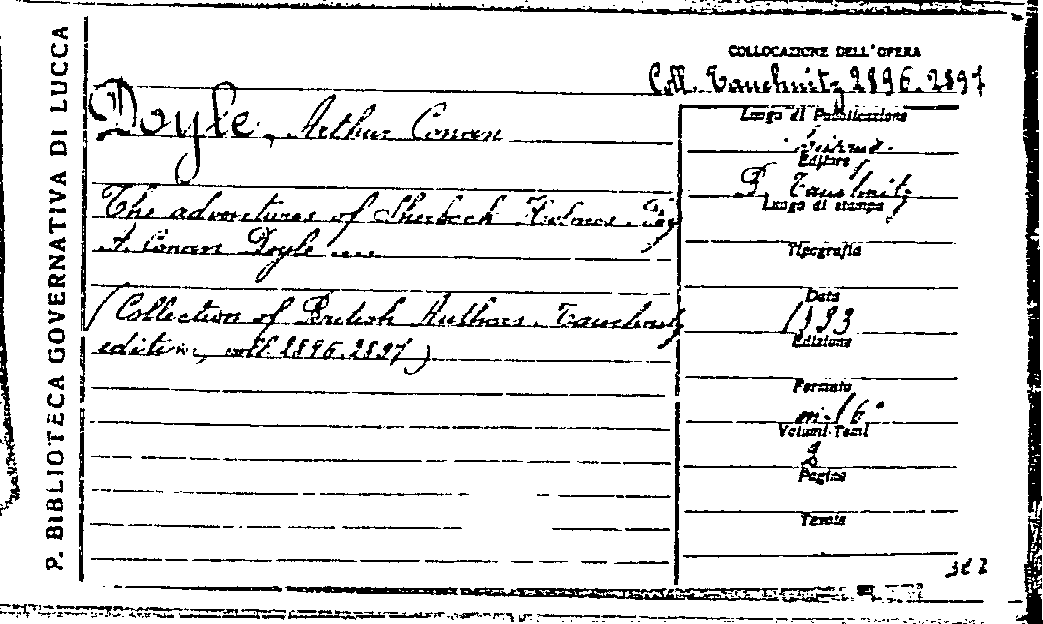 P. BIBLIOTECA GOVERNATIVA DI LUCCA
COLLOCAZIONE DELL'OPERA
Coll. Tauchnitz 2896-2897
Doyle, Arthur Conan
The adventures of Sherlock Holmes. By
A. Conan Doyle ....
(Collection of British Authors. Tauchnitz
edition, voll. 2896-2897)
Luogo di Pubblicazione
Editore
B. Tauchnitz
Luogo di stampa
Tipografia
Data
1893
Edizione
Formato
in-16°
Volumi-Tomi
2
Pagine
Tavole